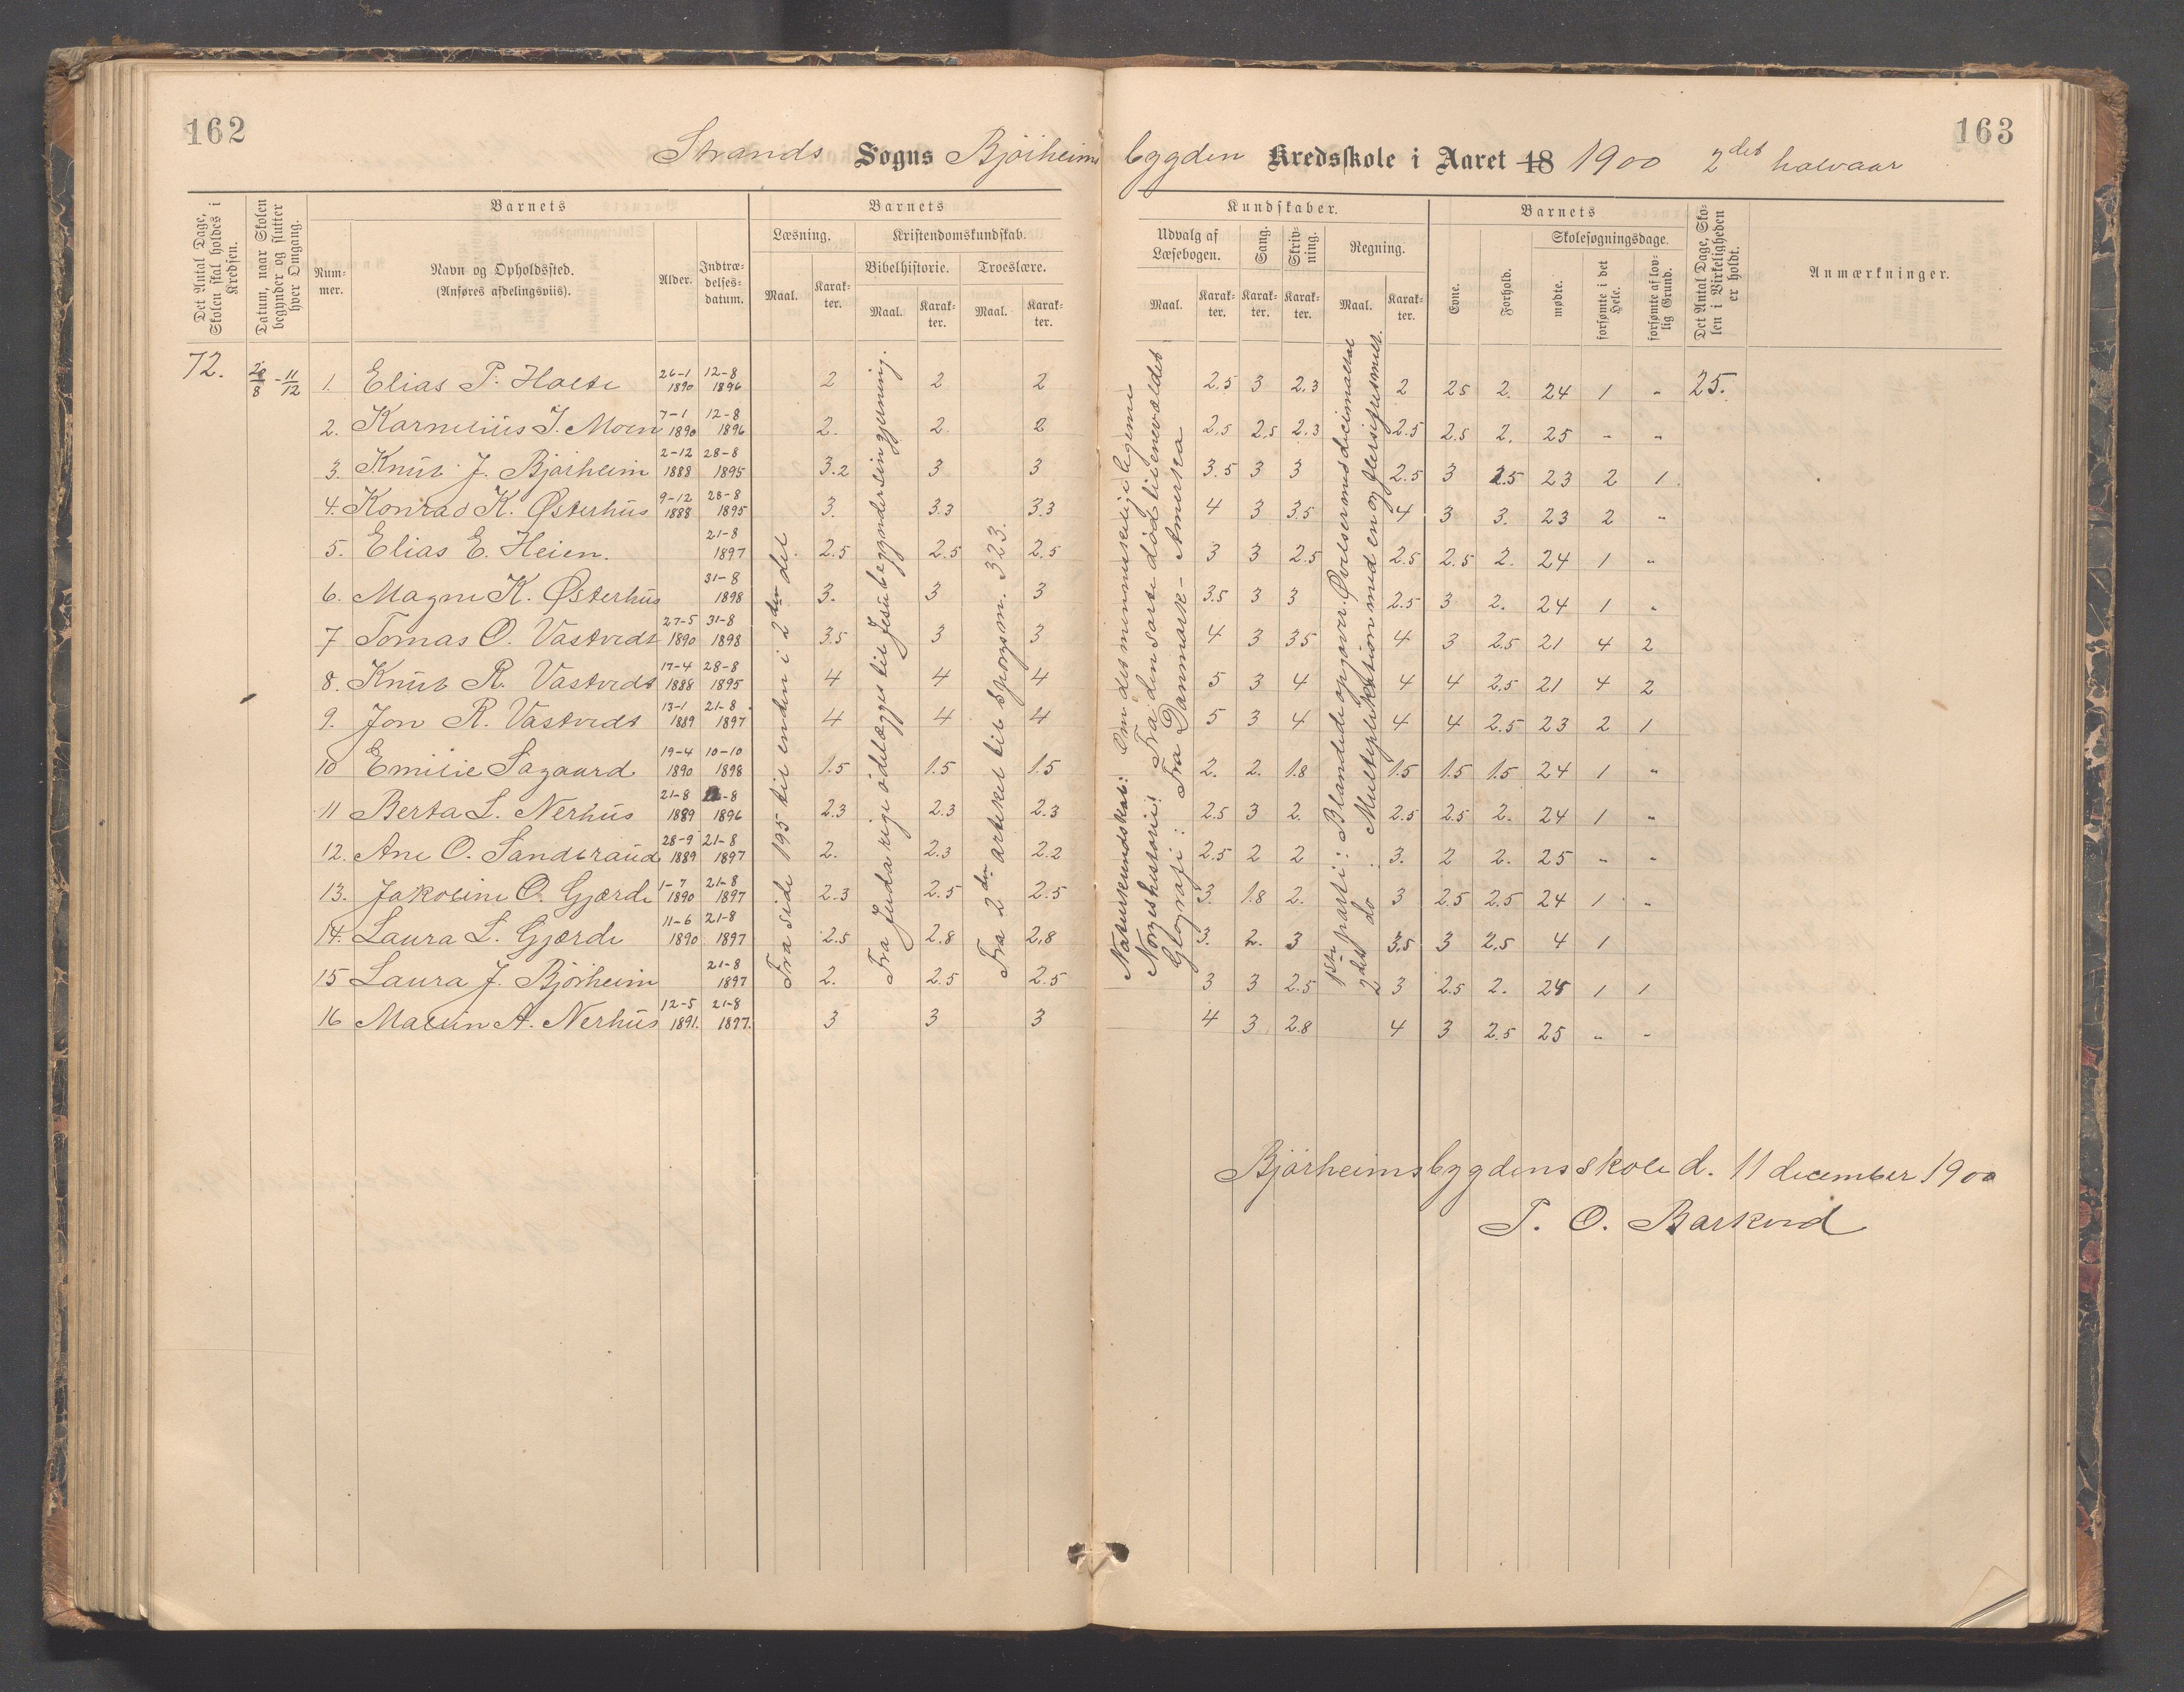 162
163
Strands Sogns Bjørheims bygden Kredsskole i Aaret 18 1900 2det halvaar
Det Antal Dage, Skolen skal holdes i Kredsen.
Datum, naar Skolen begynder og slutter hver Omgang.
Barnets
Num-mer.
Navn og Opholdssted. (Anføres afdelingsviis).
Alder.
Indtræ-delses-datum.
Barnets
Læsning.
Maal. Karak-ter.
Kristendomskundskab.
Bibelhistorie. Troeslære.
Maal. Karak-ter. Maal. Karak-ter.
Kundskaber.
Udvalg af Læsebogen.
Maal. Karak-ter.
Sang. Karak-ter.
Skriv-ning. Karak-ter.
Regning.
Maal. Karak-ter.
Barnets
Evne. Forhold.
Skolesøgningsdage.
mødte. forsømte i det Hele. forsømte af lov-lig Grund.
Det Antal Dage, Sko-len i Virkeligheden er holdt.
Anmærkninger.
72. - 11/12 1. Elias P. Holte 26-1 1890 12-8 1896 2 2 2 2.5 3 2.3 2 25 2. 24 1 " 25.
2. Karnelius J. Moen 7-1 1890 12-8 1896 2. 2. 2 2.5 2.5 2.3 2.5 2.5 2. 25 " "
3. Knut J. Bjørheim 2-12 1888 28-8 1895 3.2 3 3 3.5 3 3 2.5 3 2.5 23 2 1
4. Konrad K. Østerhus 9-12 1888 28-8 1895 3. 3.3 3.3 4 3 3.5 4 3 3. 23 2 "
5. Elias E. Heien. 21-8 1897 2.5 2.5 2.5 3 3 2.5 2.5 2.5 2. 24 1 "
6. Magne K. Østerhus 31-8 1898 3. 3 3 3.5 3 3 2.5 3 2. 24 1 "
7 Tomas O. Vastvedt 27-5 1890 31-8 1898 3.5 3 3 4 3 35 4 3 2.5 21 4 2
8. Knut R. Vastvedt 17-4 1888 28-8 1895 4 4 4 5 3 4 4 4 2.5 21 4 2
9. Jon R. Vastvedt 13-1 1889 21-8 1897 4 4 4 5 3 4 4 4 2.5 23 2 1
10 Emilie Sagaard 19-4 1890 10-10 1898 1.5 1.5 1.5 2. 2. 1.8 1.5 1.5 1.5 24 1 "
11 Berta L. Nerhus 21-8 1889 -8 1896 2.3 2.3 2.3 2.5 3 2. 2.5 2.5 2. 24 1 "
12. Ane O. Sandbraud 28-9 1889 21-8 1897 2. 2.3 2.2 2.5 2 2 3. 2 2. 25 " "
13. Jakobine O. Gjærde 1-7 1890 21-8 1897 2.3 2.5 2.5 3. 1.8 2. 3 2.5 2.5 24 1 "
14. Laura L. Gjærde 11-6 1890 21-8 1897 2.5 2.8 2.8 3. 2. 3 3.5 3 2.5 4 1
15 Laura J. Bjørheim 21-8 1897 2. 2.5 2.5 3 3 2.5 3 2.5 2. 24 1 1
16 Malun A. Nerhus 12-5 1891. 21-8 1897. 3 3 3 4 3 2.8 4 3 2.5 25 " "
Fra side 195 til enden i 2den del
Fra Juda rige ødelægges til Jesu begynder sin gjerning.
Fra 2den artikel til spørgsm. 323.
Naturkundskab: Om det menneskelige legeme
Norgeshistorie: Fra den sorte død til enevældet
Geografi: Fra Danmark - Amerika
1ste parti: Blandede opgaver. Øvelser med decimaltal
2det do Multiplikation med en og flersifres mult.
Bjørheimsbygdens skole d. 11 december 1900
T. O. Barkved